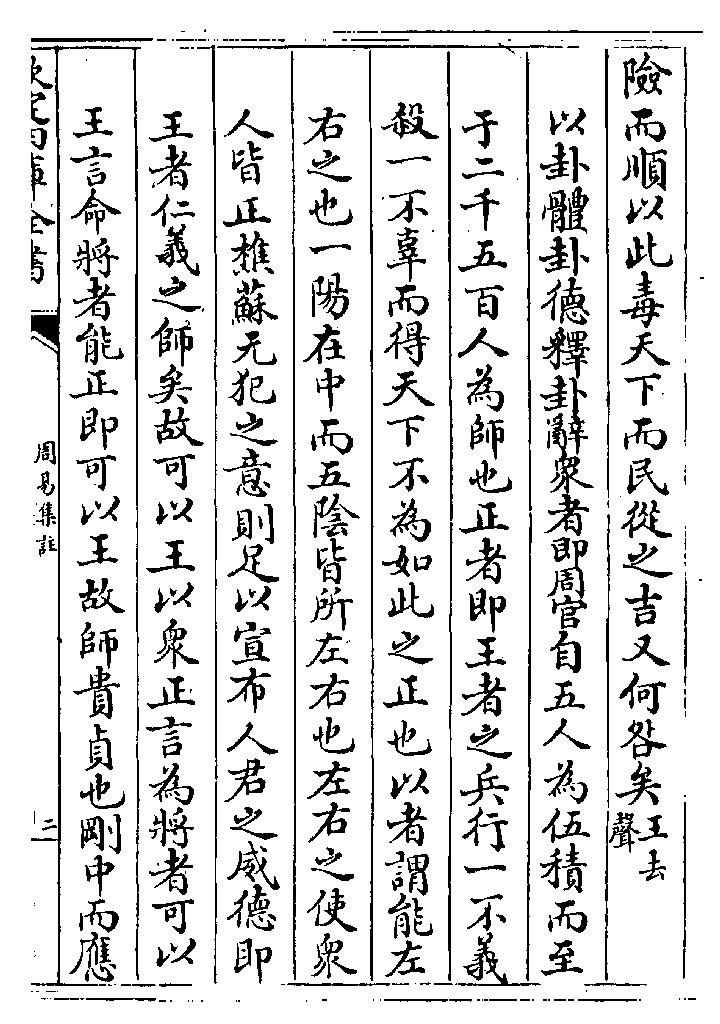 險而順以此毒天下而民從之吉又何咎矣王去聲
以卦體卦德釋卦辭衆者即周官自五人為伍積而至
于二千五百人為師也正者即王者之兵行一不義
殺一不辜而得天下不為如此之正也以者謂能左
右之也一陽在中而五陰皆所左右也左右之使衆
人皆正樵蘇无犯之意則足以宣布人君之威德即
王者仁義之師矣故可以王以衆正言為將者可以
王言命將者能正即可以王故師貴貞也剛中而應
欽定四庫全書
周易集註
二